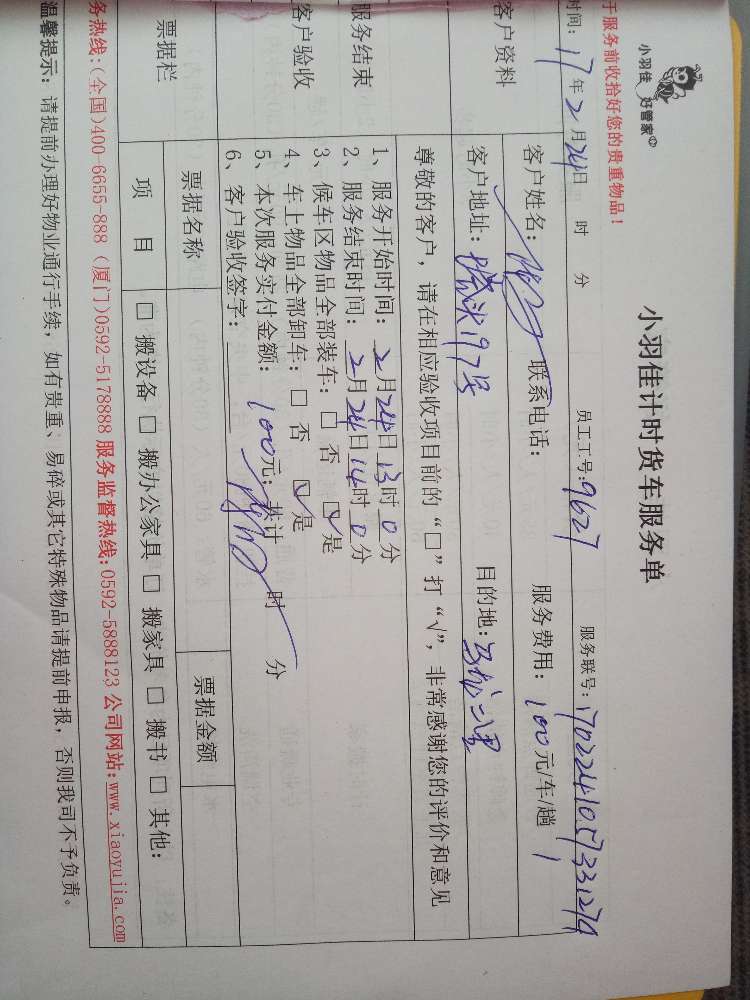 小羽佳 好管家
小羽佳计时货车服务单
于服务前收拾好您的贵重物品！
时间：17年2月24日 时 分 员工工号：9627 服务联号：
客户资料
客户姓名： 联系电话： 服务费用：100元/车/趟 1
客户地址： 197号 目的地：
尊敬的客户，请在相应验收项目前的“□”打“√”，非常感谢您的评价和意见
服务结束
客户验收
1、服务开始时间：2月24日13时0分
2、服务结束时间：2月24日14时0分
3、候车区物品全部装车：□ 否 ☑ 是
4、车上物品全部卸车：□ 否 ☑ 是
5、本次服务实付金额：100元；共计 时 分
6、客户验收签字：
票据栏
票据名称 票据金额
项 目 □ 搬设备 □ 搬办公家具 □ 搬家具 □ 搬书 □ 其他：
务热线：(全国)400-6655-888 (厦门)0592-5178888 服务监督热线：0592-5888123 公司网站：www.xiaoyujia.com
温馨提示：请提前办理好物业通行手续，如有贵重、易碎或其它特殊物品请提前申报，否则我司不予负责。